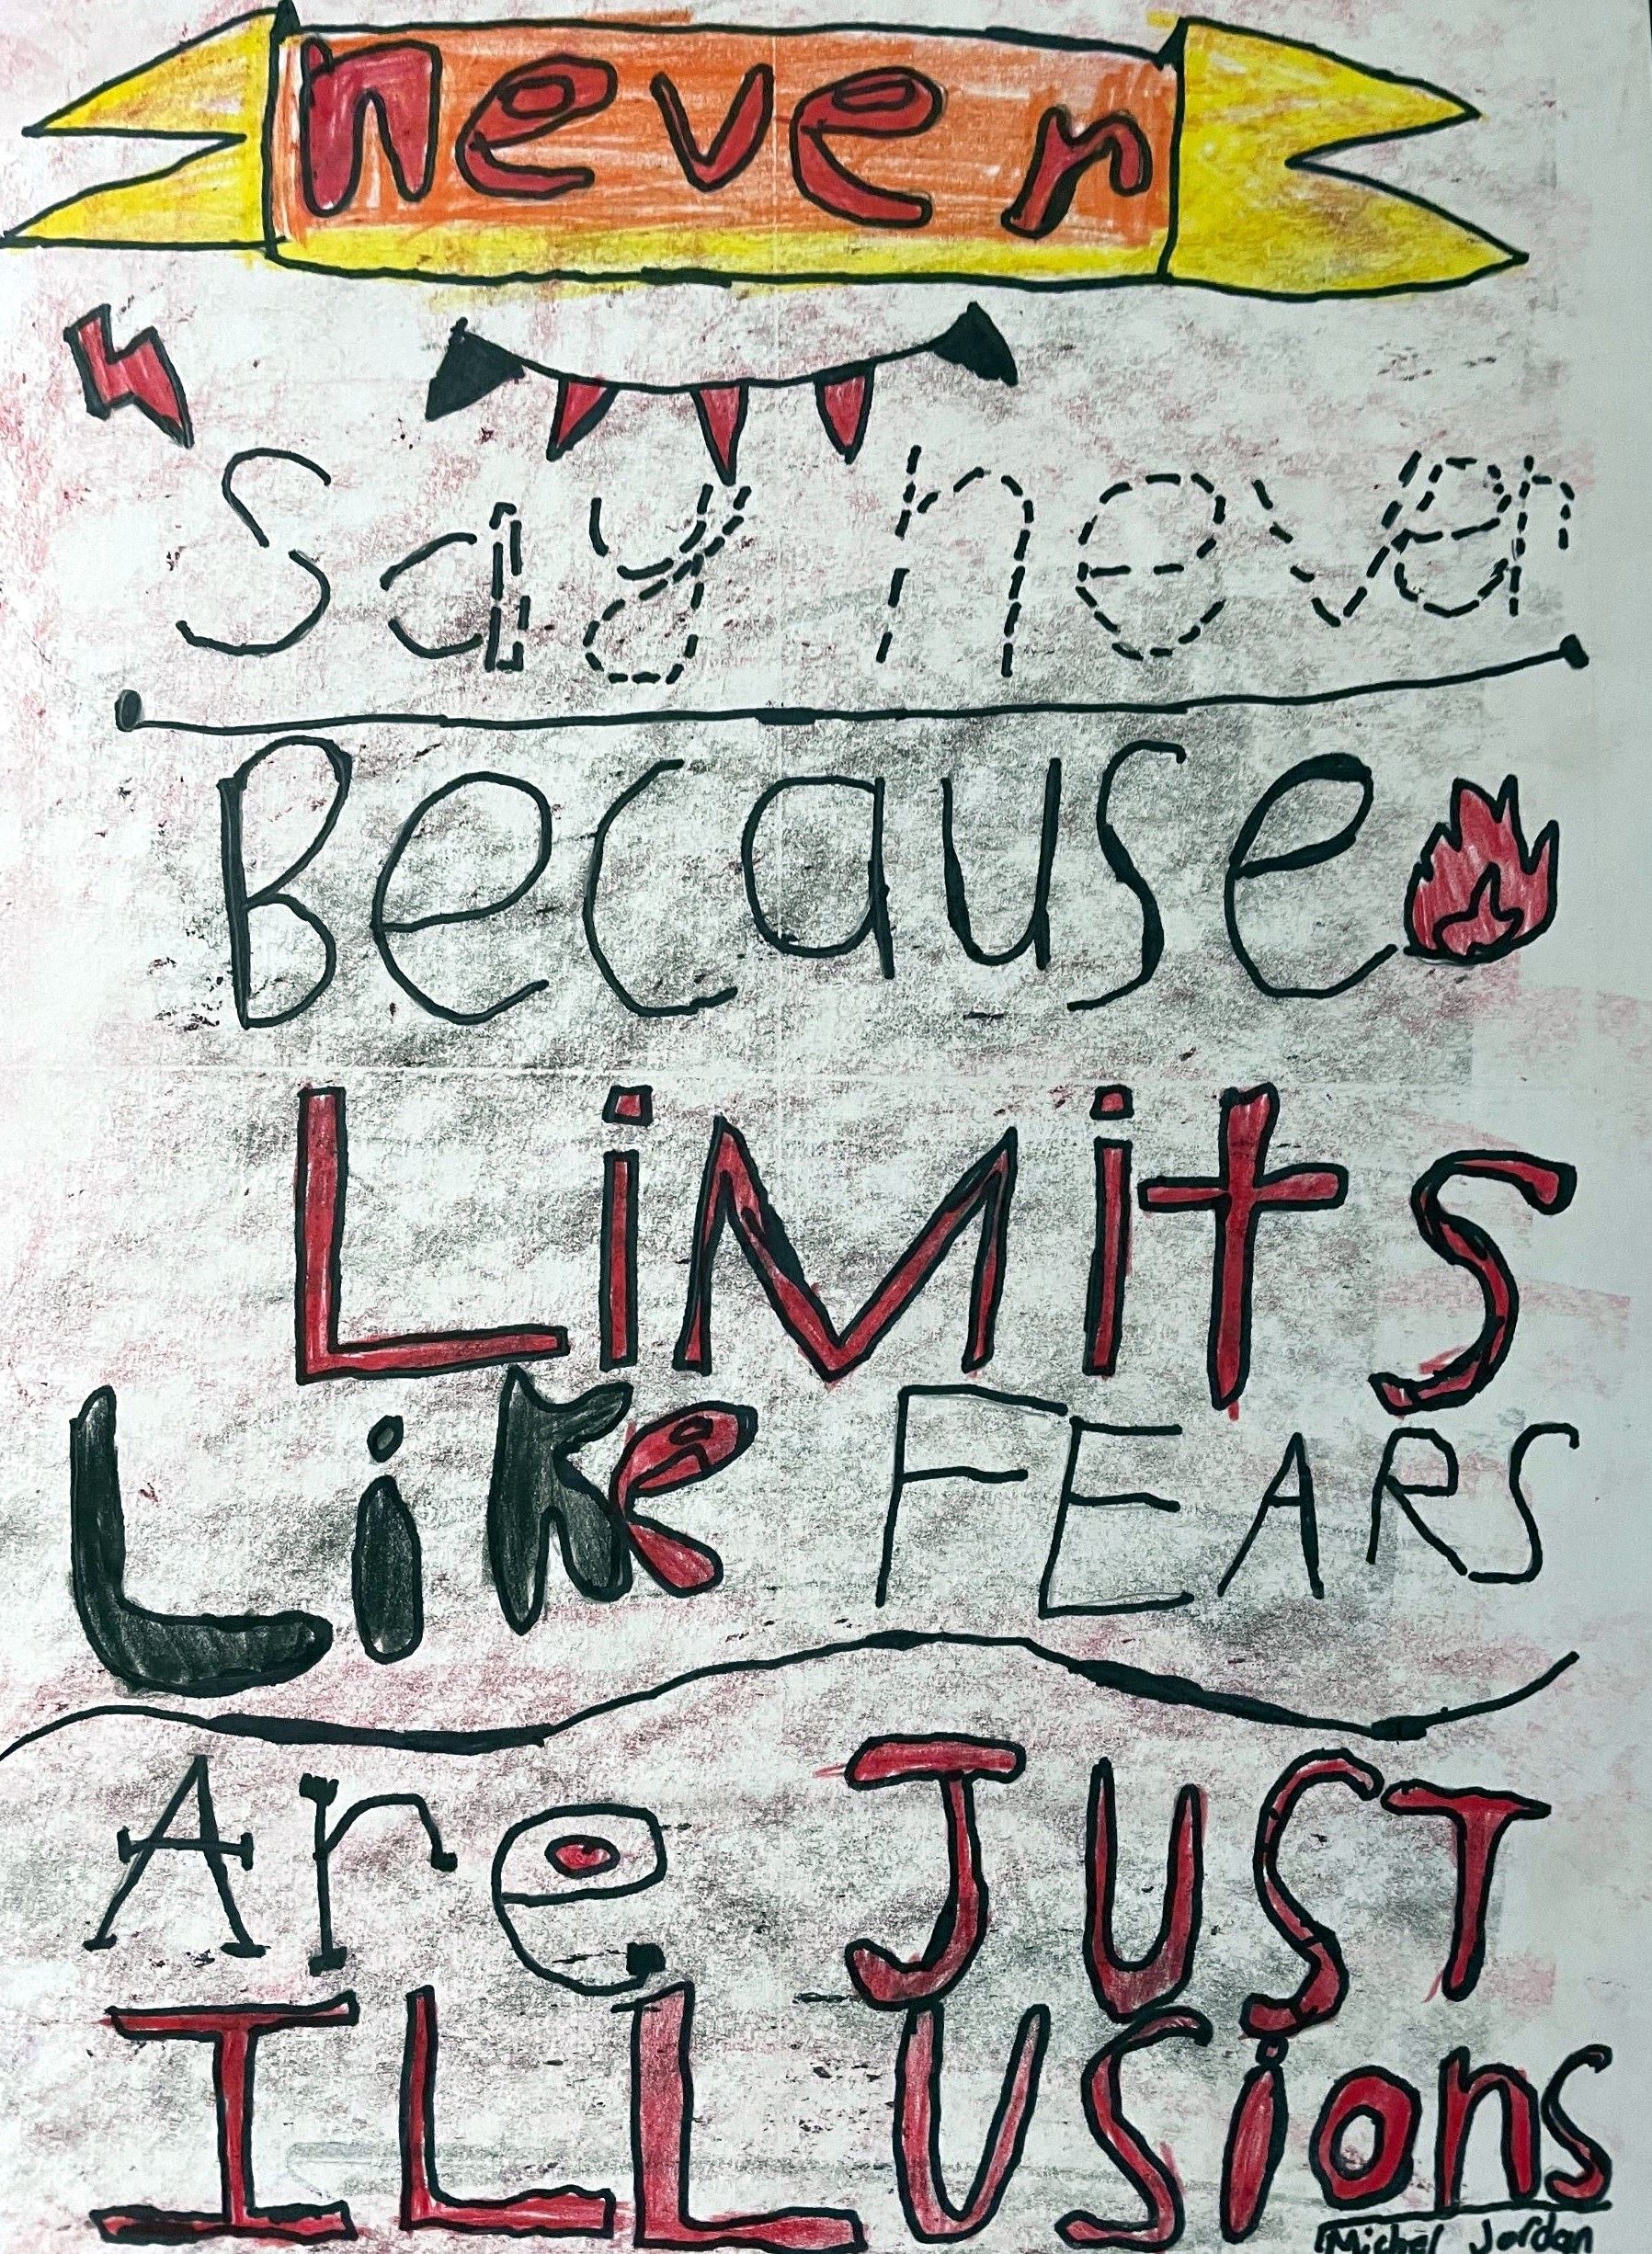 never
Say never
Because
LiMits
Like FEARS
Are JUST
ILLUSions
Michel Jordan